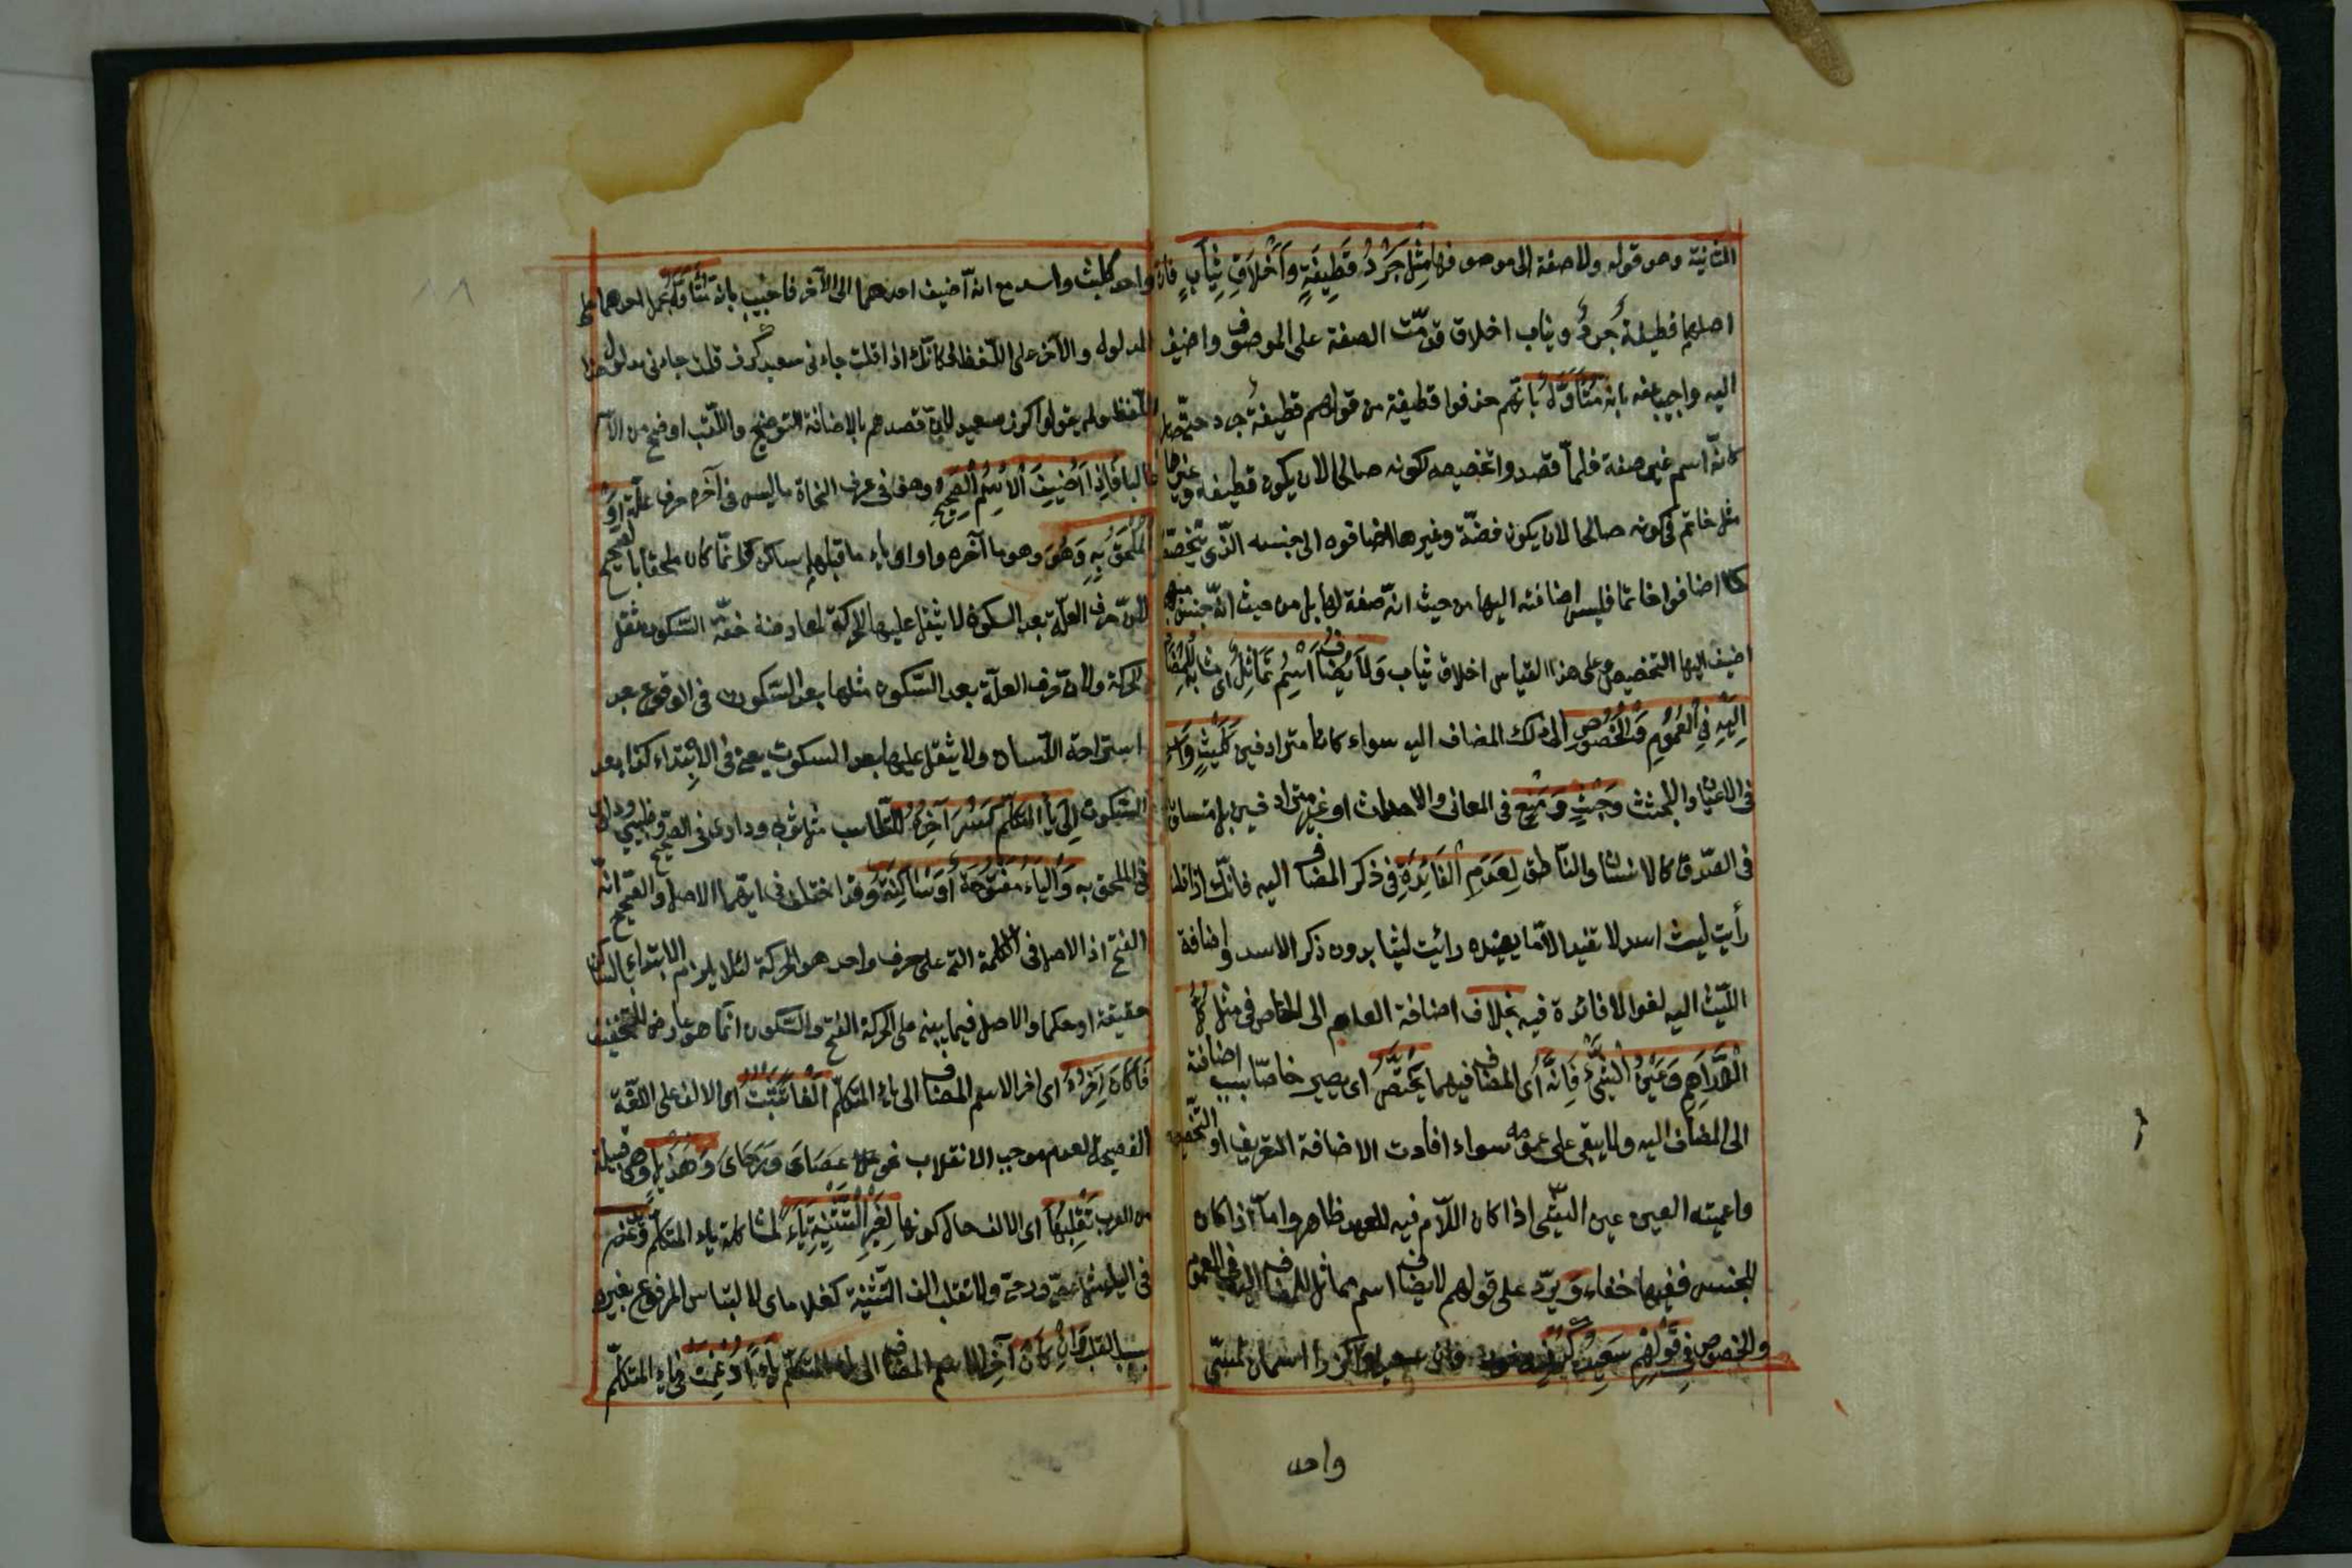 الثانية وهو قوله ولا صفة الى موصوفها مِثْل جَرْدُ قَطِيفَةٍ وَأَخْلَاقِ ثِيَابٍ فان
اصلهما قطيفة جُردٌ وثياب اخلاق قدّمت الصفة على الموصوف واضيف
اليه واجيب عنه بانه مُتَأَوَّلٌ بانّهم حذفوا قطيفة من قولهم قطيفةٌ جرد حتّى صار
كانّه اسم غير صفة فلمّا قصدوا تخصيصه لكونه صالحا لان يكون قطيفة وغيرها
مثل خاتم فى كونه صالحا لان يكون فضّة وغيرها اضافوه الى جنسه الّذى يتخصّص
كما اضافوا خاتما فليس اضافته اليها من حيث انّه صفة لها بل من حيث انّه جنس مبهم
اضيف اليها التخصيص وعلى هذا القياس اخلاق ثياب وَلَا يُضَافُ اسْمٌ مُمَاثِلٌ اى مشابه لِلْمُضَافِ
اِلَيْهِ فِي الْعُمُومِ وَالْخُصُوصِ الى ذلك المضاف اليه سواء كانا مترادفين كَلَيْثٍ وَاَسَدٍ
فى الاعيان والجثث وَحَبْسٍ وَمَنْعٍ فى المعانى والاحداث او غير مترادفين بل متساويان
فى الصّدق كالانسان والنّاطق لِعَدَمِ الْفَائِدَةِ فى ذكر المضاف اليه فانّك اذا قلت
رأيت ليث اسد لا تفيد الّا ما يفيده رائيت ليثا بدون ذكر الاسد واضافة
اللّيث اليه لغوا لا فائدة فيه بخلاف اضافة العام الى الخاص فى مثل كُلُّ
الدَّرَاهِمِ وَعَيْنُ الشَّيْءِ فَإِنَّهُ اى المضاف فيهما يَخْتَصُّ اى يصير خاصّا بسبب اضافته
الى المضاف اليه ولا يبقى على عمومه سواء افادت الاضافة التعريف او التّخصيص
واعمّيّته العين عين الشّئ اذا كان اللّام فيه للعهد ظاهر وامّا اذا كان
للجنس ففيها خفاء وَيرد على قولهم لا يضاف اسم مماثل للمضاف اليه فى العموم
والخصوص فِي قَوْلِهِمْ سَعِيدُ كُرْزٍ فان سعيدا وكرزا اسمان لمسمّى
واحد
واحد كليث واسد مع انّه اضيف احدهما الى الآخر فاجيب بانه مُتَأَوَّلٌ بحمل احدهما على
المدلول والآخر على اللّفظ فكانّك اذا قلت جاءنى سعيد كرز قلت جاءنى مدلول هذا
اللّفظ ولم يقولوا كرز سعيد لانّ قصدهم بالاضافة التوضيح واللّقب اوضح من الاسم
غالبا فَإِذَا أُضِيفَ الْاِسْمُ الصَّحِيحُ وهو فى عرف النحاة ما ليس فى آخره حرف علّة أَوْ
الْمُلْحَقُ بِهِ وَهُوَ وهو ما آخره واو او ياء ما قبلها ساكن وانّما كان ملحقا بالصحيح
لانّ حرف العلّة بعد السكون لا يثقل عليها الحركة لمعارضة خفّة السّكون ثقل
الحركة ولانّ حرف العلّة بعد السّكون مثلها بعد السّكوت فى الوقوع بعد
استراحة اللّسان ولا يثقل عليها بعد السكوت يعنى فى الابتداء كذا بعد
السّكون إِلَى يَاءِ الْمُتَكَلِّمِ كُسِرَ آخِرُهُ للتّناسب مثل ثوبى ودارى فى الصّحيح وظبيى ودلوى
فى الملحق به وَالْيَاءُ مَفْتُوحَةٌ أَوْ سَاكِنَةٌ وقد اختلف فى ايّهما الاصل والصّحيح انّه
الفتح اذ الاصل فى الكلمة الّتى على حرف واحد هو الحركة لئلا يلزم الابتداء بالساكن
حقيقة او حكما والاصل فيما يبنى على الحركة الفتح والسّكون انّما هو عارض للتّخفيف
فَإِنْ كَانَ آخِرُهُ اى اخر الاسم المضاف الى ياء المتكلّم أَلِفًا تُثْبَتُ اى الالف على اللّغة
الفصيحة لعدم موجب الانقلاب نحو عَصَاىَ وَرَحَاىَ وَهُذَيْلٌ وهى قبيلة
من العرب تَقْلِبُهَا اى الالف حال كونها لِغَيْرِ التَّثْنِيَةِ يَاءً لمشاكلة ياء المتكلّم وتدغم
فى الياء مثل عصىّ ورحىّ ولا تقلب الف التّثنية كغلاماى لالتباس المرفوع بغيره
بسبب القلب وَإِنْ كَانَ آخِرُ الاسم المضاف الى ياء المتكلّم يَاءً أُدْغِمَتْ فى ياء المتكلّم